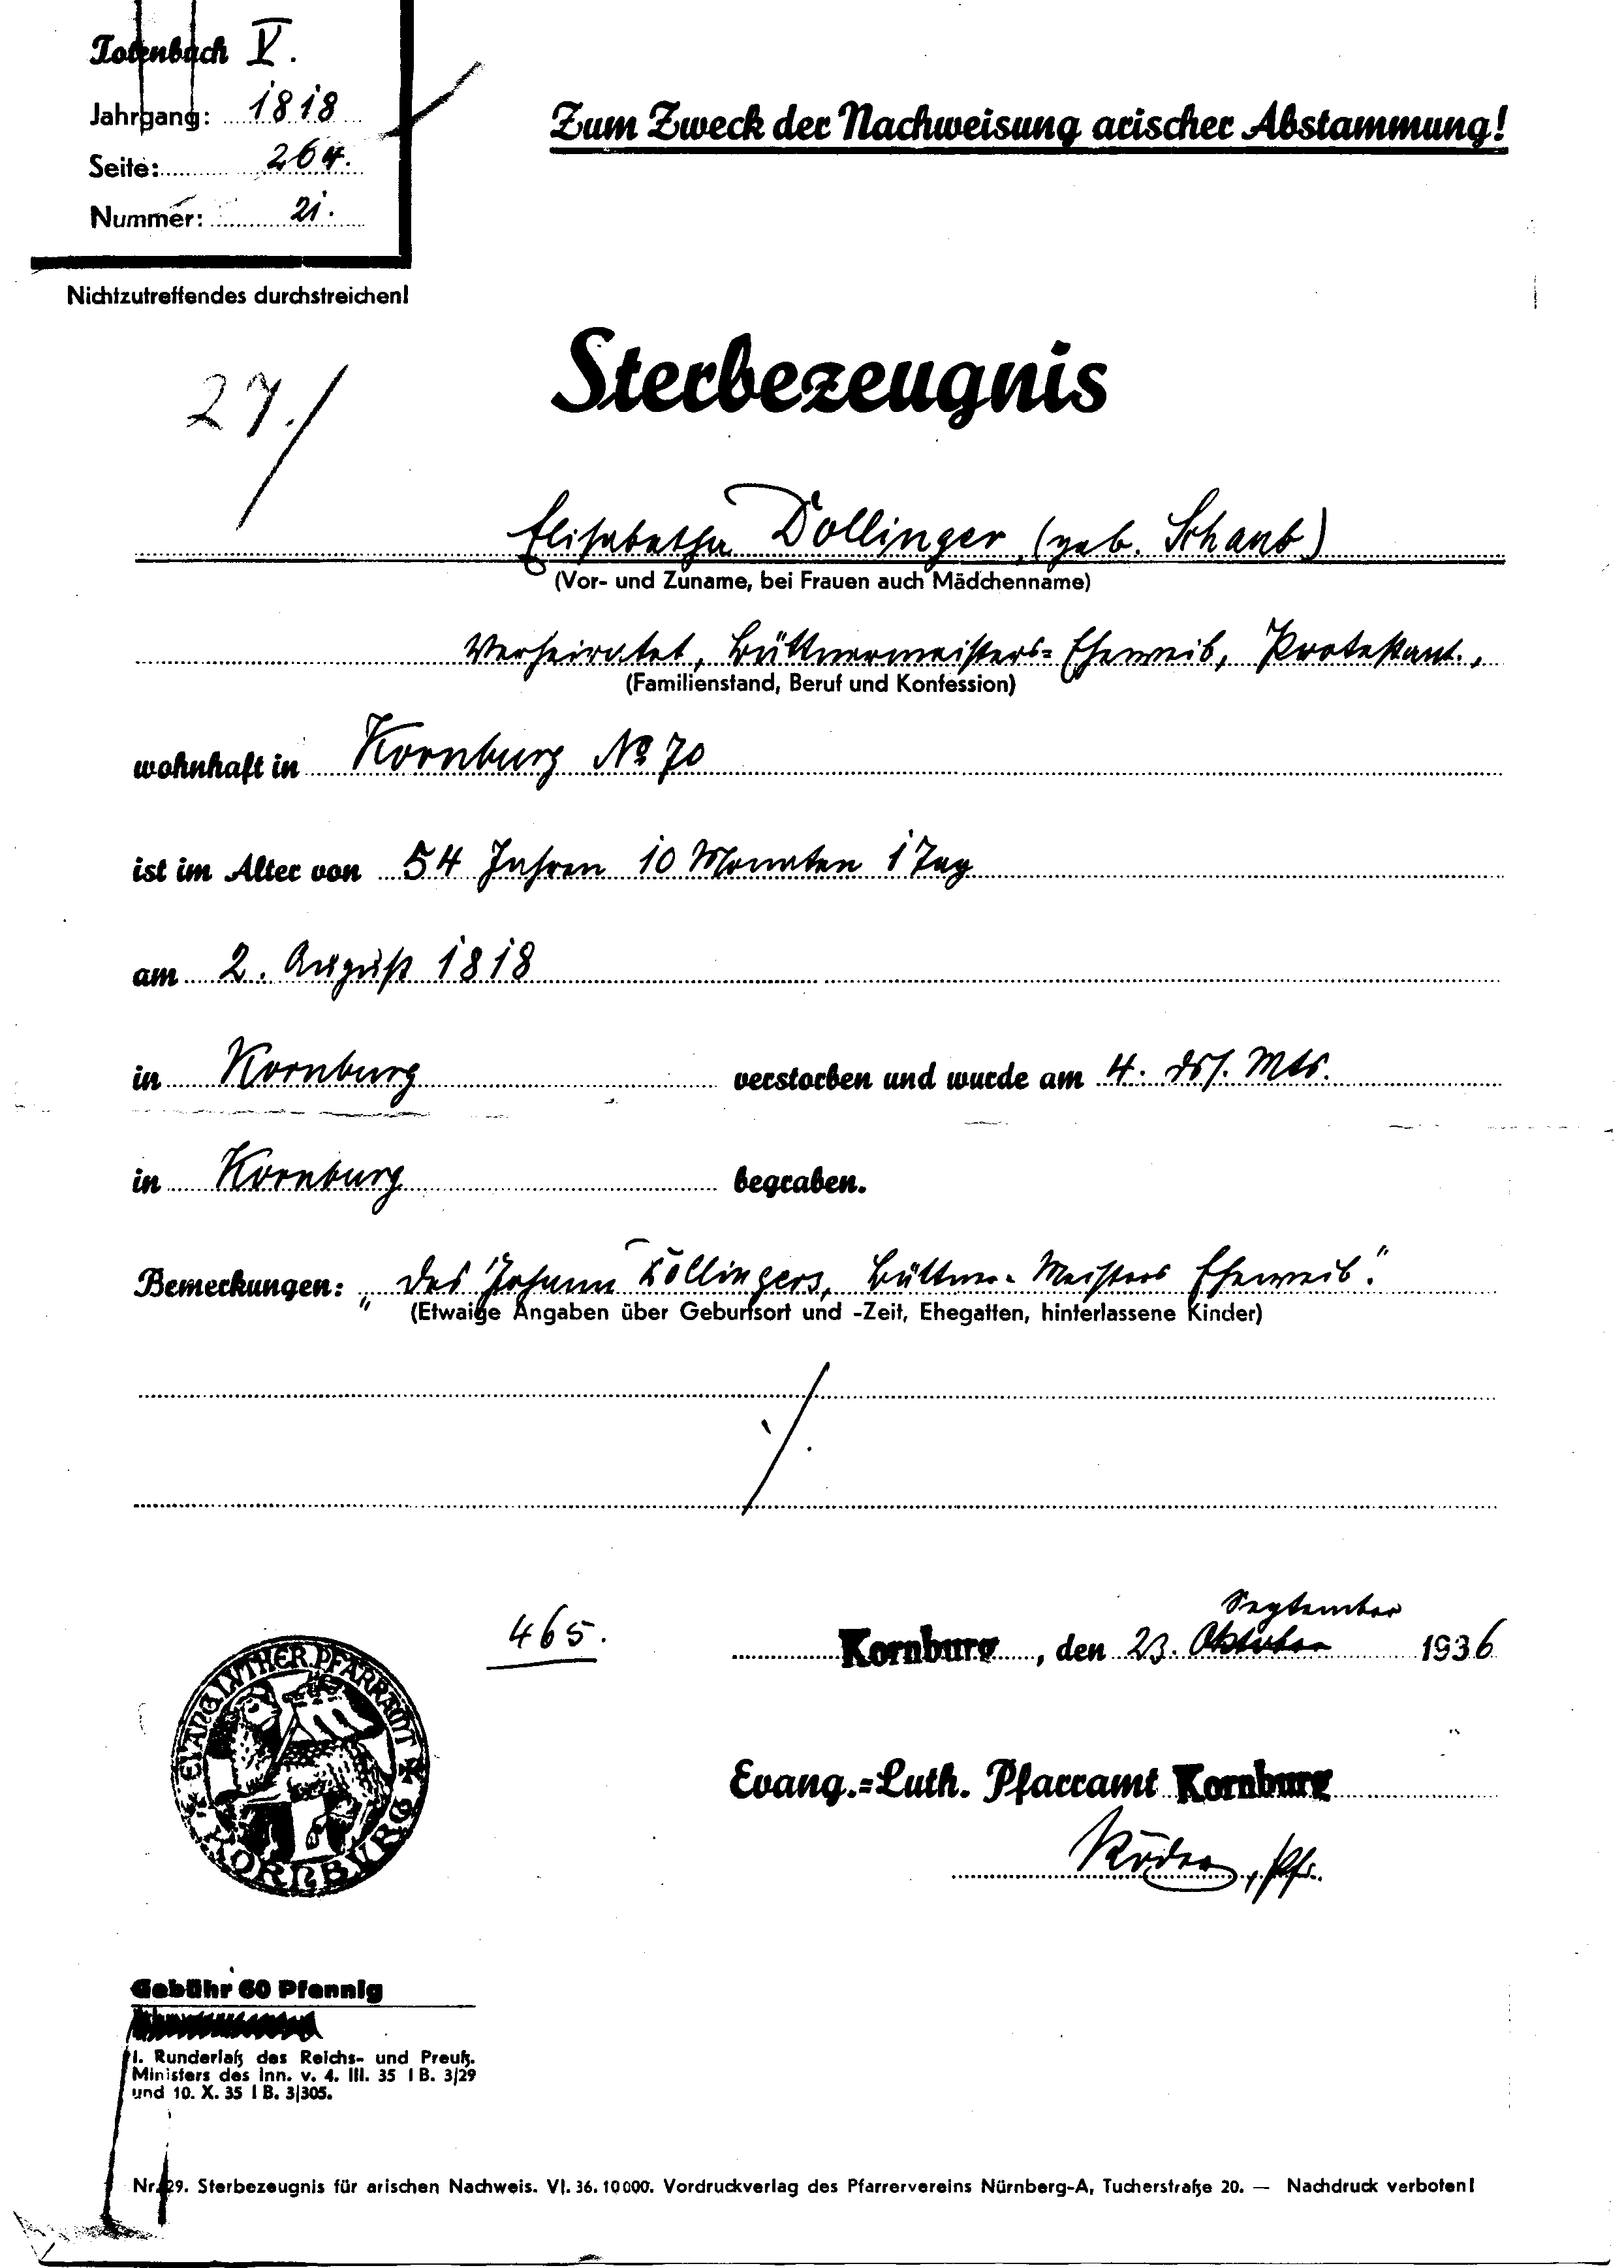 Totenbuch V.
Jahrgang: 1818
Seite: 264.
Nummer: 21.
Nichtzutreffendes durchstreichen!
Zum Zweck der Nachweisung arischer Abstammung!
27./
Sterbezeugnis
Elisabetha Döllinger (geb. Schaub)
(Vor- und Zuname, bei Frauen auch Mädchenname)
Verheiratet, Büttnermeisters-Eheweib, Protestant.,
(Familienstand, Beruf und Konfession)
wohnhaft in Kornburg No 70
ist im Alter von 54 Jahren 10 Monaten 1 Tag
am 2. August 1818
in Kornburg verstorben und wurde am 4. ds. Mts.
in Kornburg begraben.
Bemerkungen: „des Johann Döllingers, Büttner-Meisters Eheweib."
(Etwaige Angaben über Geburtsort und -Zeit, Ehegatten, hinterlassene Kinder)
465.
September
Kornburg, den 23. Oktober 1936
EVANG. LVTHER. PFARRAMT KORNBVRG
Evang.=Luth. Pfarramt Kornburg
Röder, Pfr.
Gebühr 60 Pfennig
l. Runderlaß des Reichs- und Preuß.
Ministers des Inn. v. 4. III. 35 I B. 3/29
und 10. X. 35 I B. 3/305.
Nr. 29. Sterbezeugnis für arischen Nachweis. VI. 36. 10000. Vordruckverlag des Pfarrervereins Nürnberg-A, Tucherstraße 20. — Nachdruck verboten!